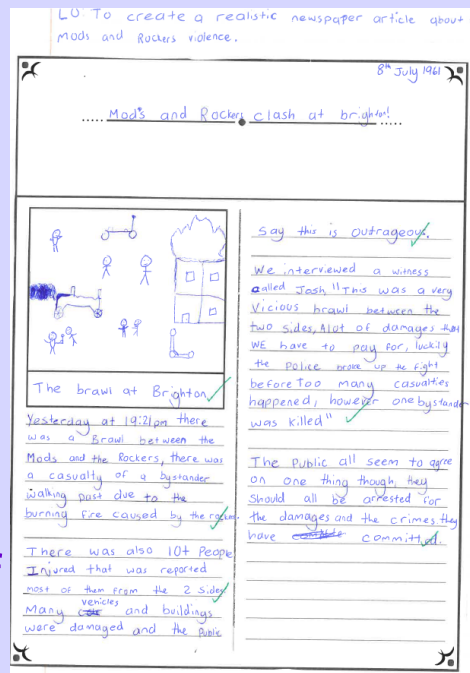 LO: To create a realistic newspaper article about
Mods and Rockers violence.
8th July 1961
..... Mod's and Rockers clash at brighton! .....
The brawl at Brighton
Yesterday at 19:21pm there
was a Brawl between the
Mods and the Rockers, there was
a casualty of a bystander
walking past due to the
burning fire caused by the rockers.
There was also 10+ People
Injured that was reported
most of them from the 2 sides.
Many vehicles and buildings
were damaged and the Public
say this is outrageous.
We interviewed a witness
called Josh, "This was a very
vicious brawl between the
two sides, Alot of damages that
WE have to pay for, luckily
the Police broke up the fight
before too many casualties
happened, however one bystander
was killed"
The Public all seem to agree
on one thing though, they
should all be arrested for
the damages and the crimes they
have committed.